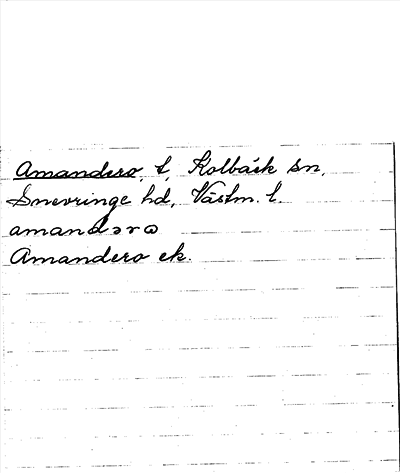 Amandero, t, Kolbäck sn,
Snevringe hd, Västm. l.
amandərɷ
Amandero ek.